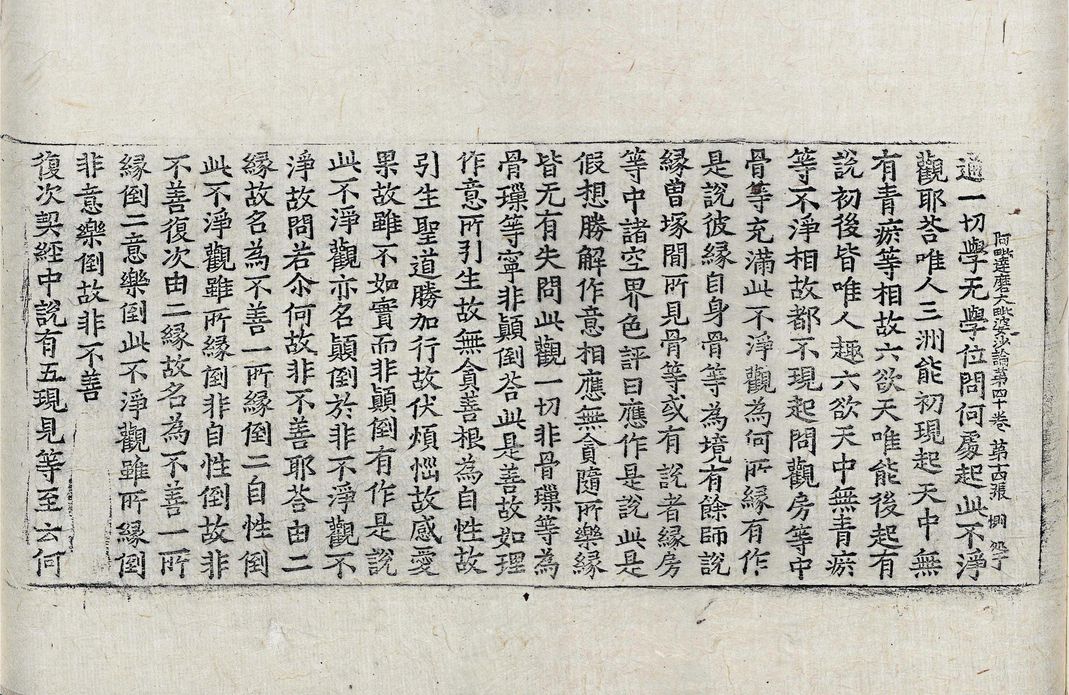 阿毗達磨大毗婆沙論第四十卷 第十四張 惻
通一切學无學位問何處起此不淨
觀耶荅唯人三洲能初現起天中無
有青瘀等相故六欲天唯能後起有
說初後皆唯人趣六欲天中無青瘀
等不淨相故都不現起問觀房等中
骨等充滿此不淨觀為何所緣有作
是說彼緣自身骨等為境有餘師說
緣曾塚間所見骨等或有說者緣房
等中諸空界色評曰應作是說此是
假想勝解作意相應無貪隨所樂緣
皆无有失問此觀一切非骨璅等為
骨璅等寧非顛倒荅此是善故如理
作意所引生故無貪善根為自性故
引生聖道勝加行故伏煩惱故感愛
果故雖不如實而非顛倒有作是說
此不淨觀亦名顛倒於非不淨觀不
淨故問若尒何故非不善耶荅由二
緣故名為不善一所緣倒二自性倒
此不淨觀雖所緣倒非自性倒故非
不善復次由二緣故名為不善一所
緣倒二意樂倒此不淨觀雖所緣倒
非意樂倒故非不善
復次契經中說有五現見等至云何